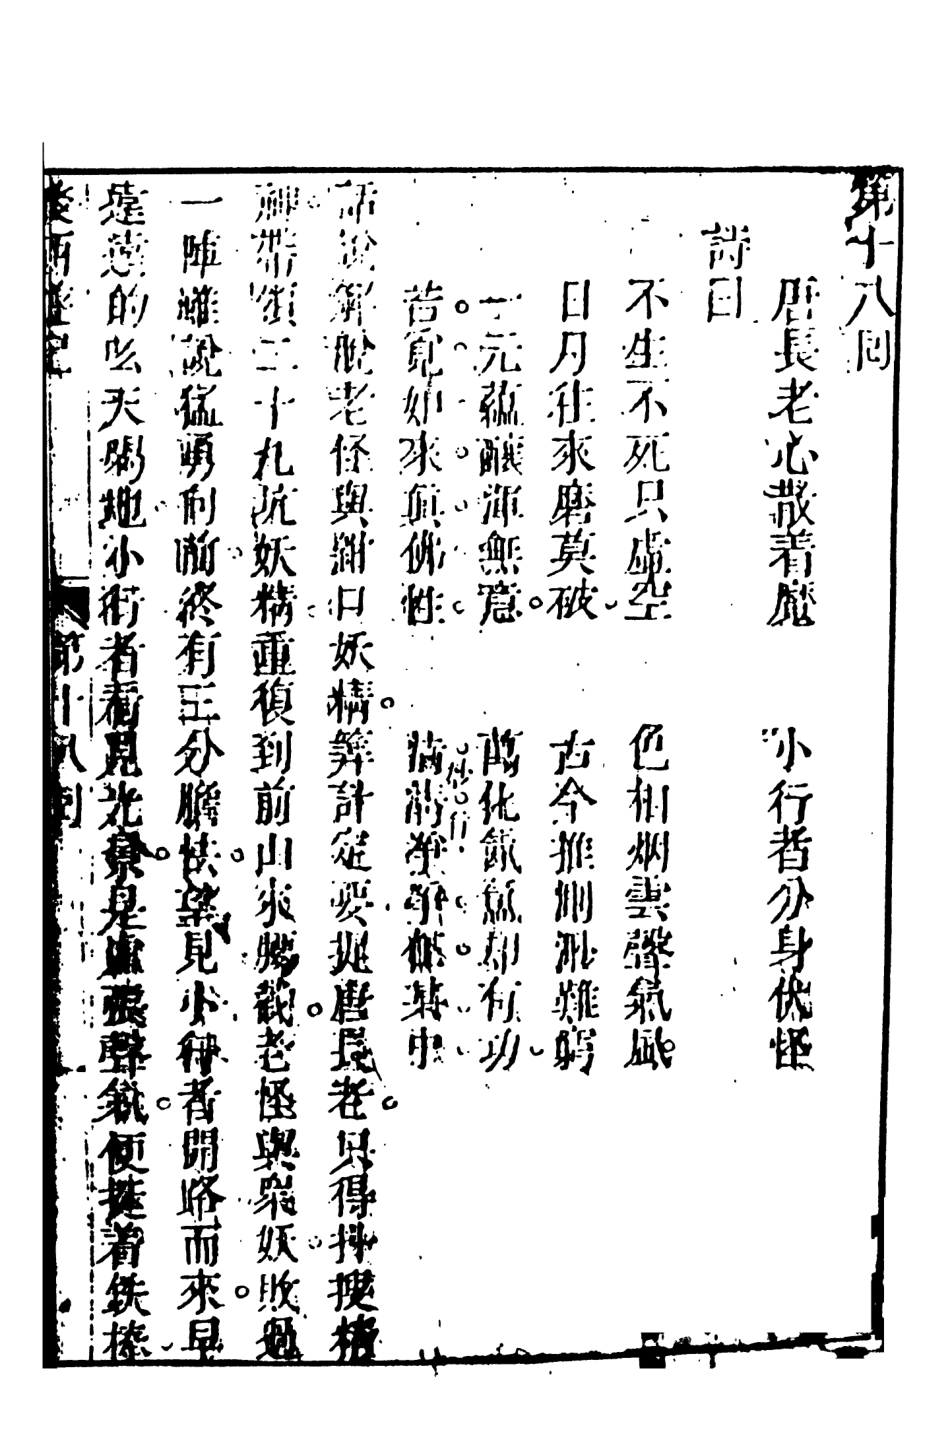 第十八回
唐長老心散着魔　小行者分身伏怪
詩曰
不生不死只虛空　色相烟雲聲氣風
日月往來磨莫破　古今推測泄難窮
一元蘊釀渾無意　萬化氤氳却有功
若見如來真佛性　病消藥藥
妙行
話說解脫老怪與謝口妖精筭計定要捉唐長老只得抖擻精
神帶領三十九坑妖精重復到前山來騰觀老怪與衆妖敗過
一陣雖說猛勇向前終有三分膽怯望見小行者開路而來早
遠遠的吆天喝地小行者看見光景是虛張聲氣便挺着鉄棒
後西遊記
第十八回